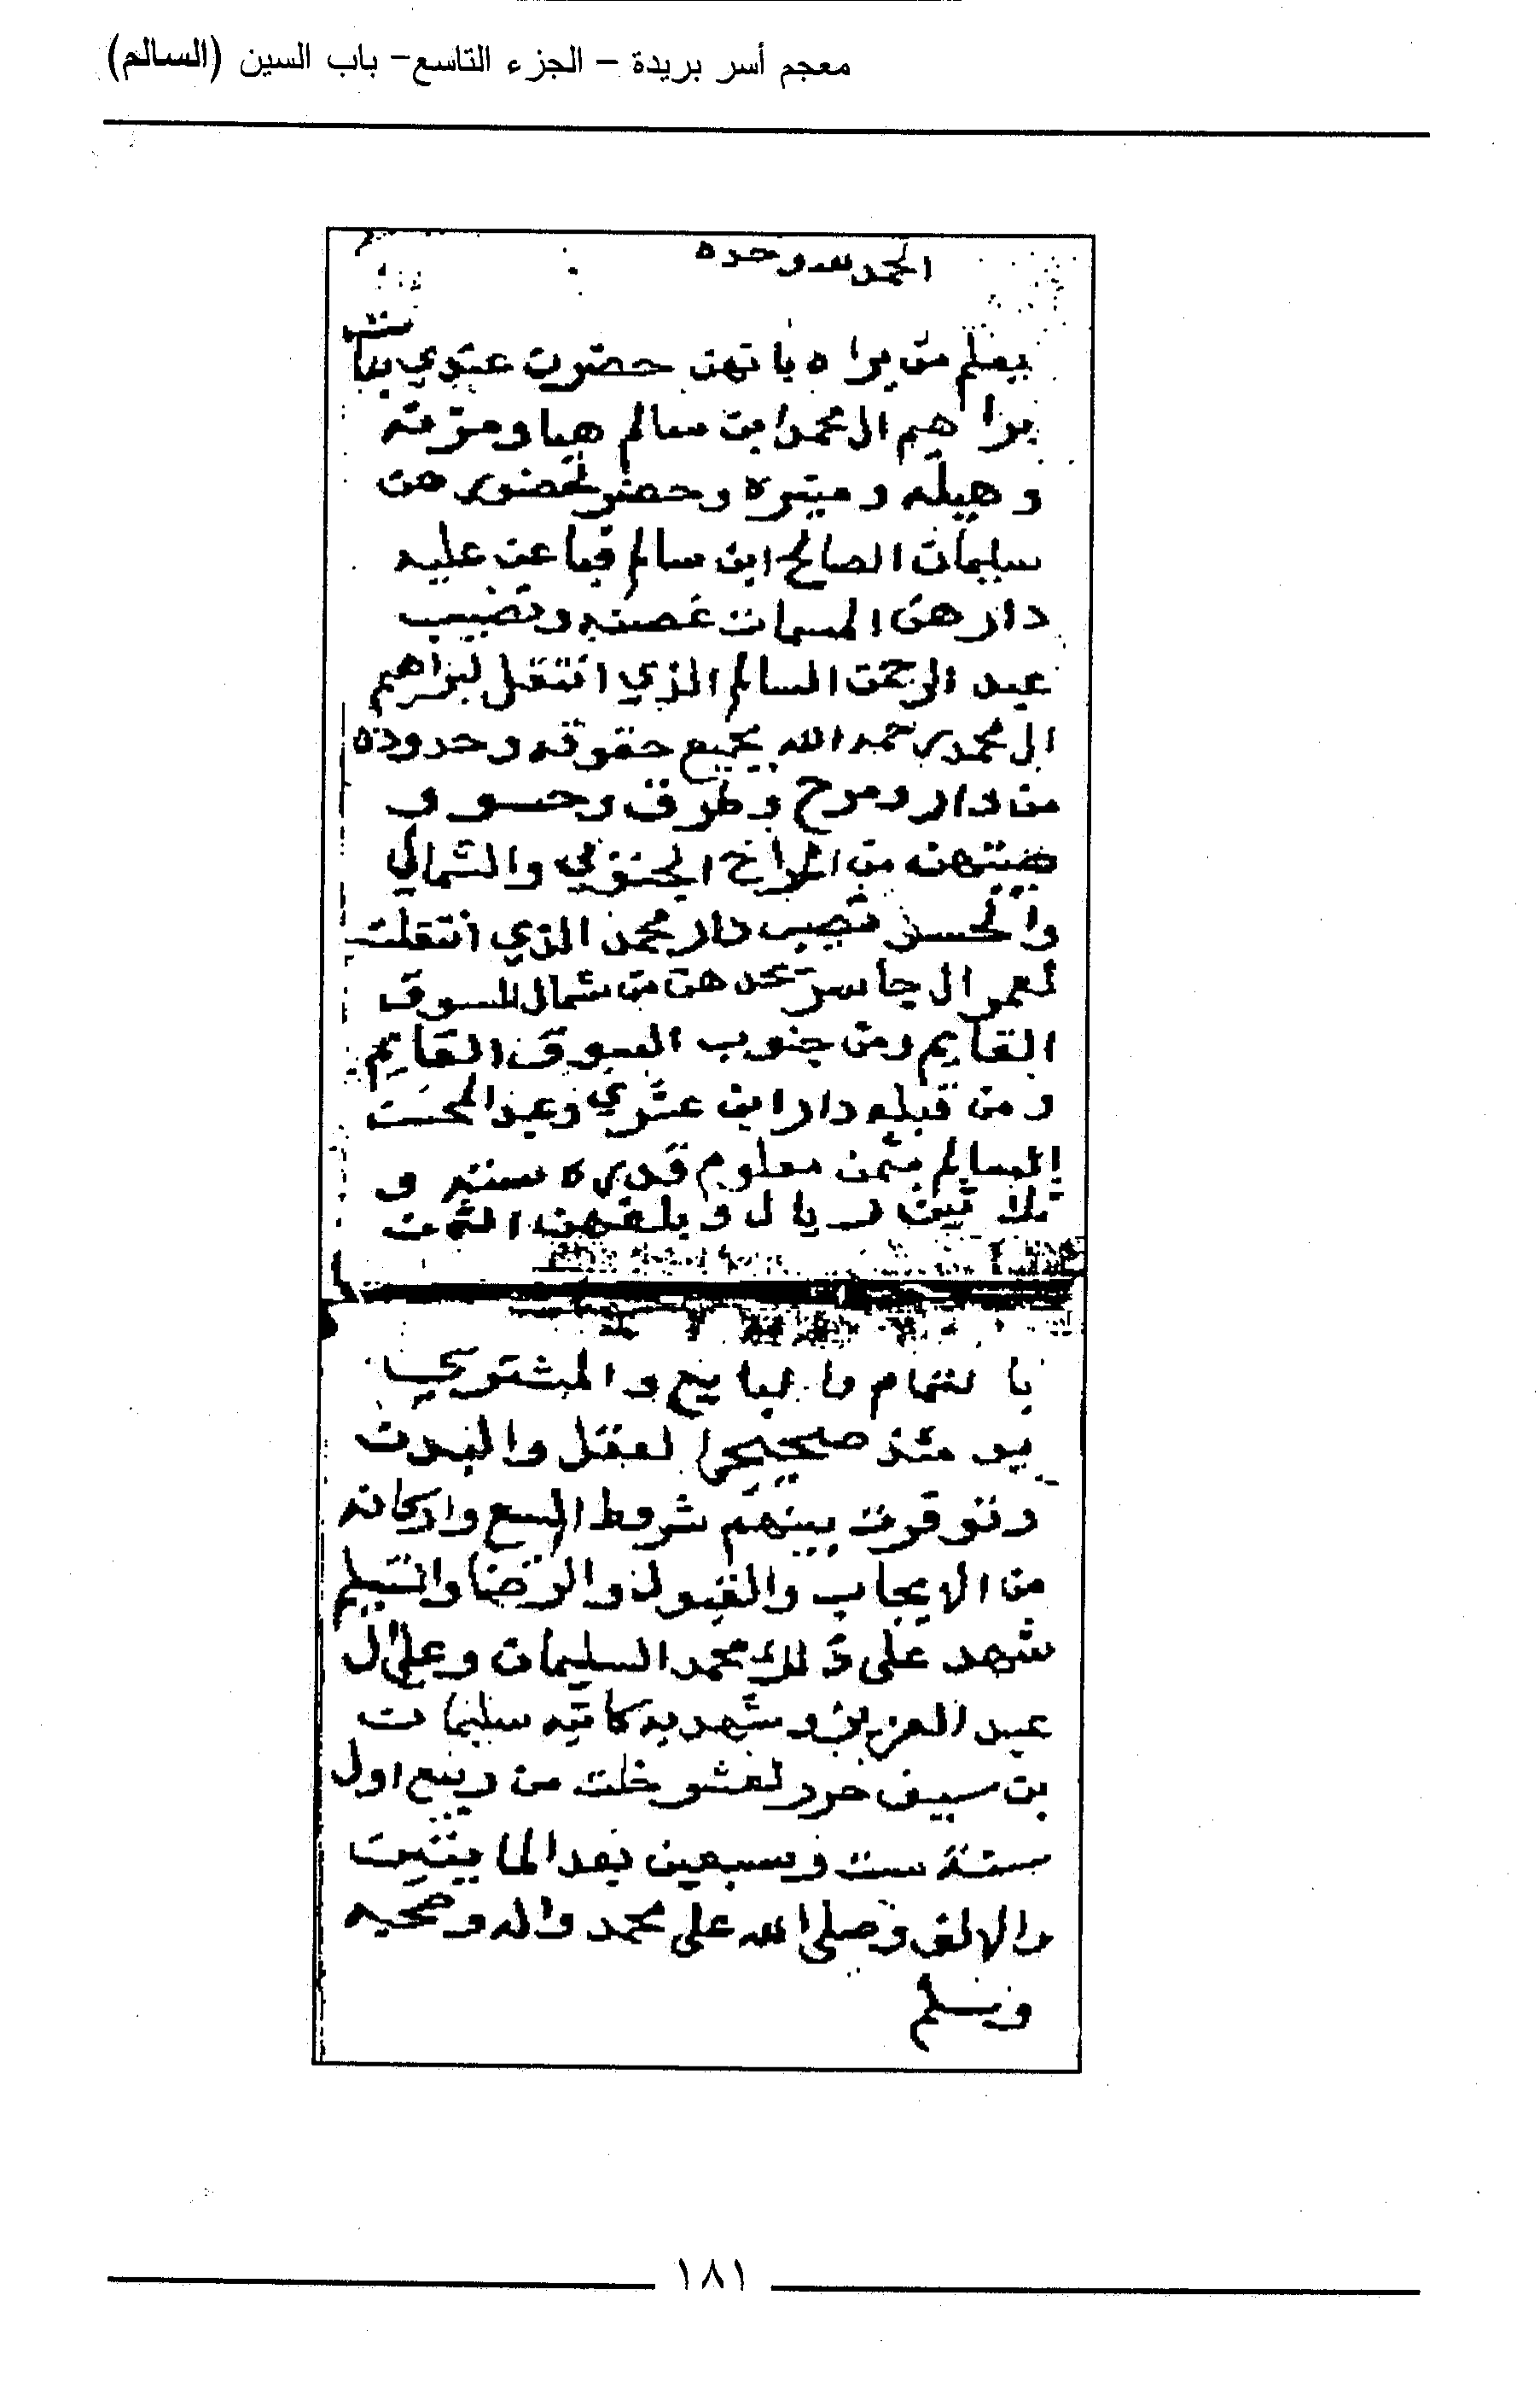 معجم أسر بريدة - الجزء التاسع - باب السين (السالم)
الحمد لله وحده
يعلم من يراه بانهن حضرن عندي بنات
براهيم ال محمد ابن سالم هيا ومزنه
وهيله ومنيره وحضر لحضورهن
سليمان الصالح ابن سالم فباعن عليه
دارهن المسمات غصنه ونصيب
عبد الرحمن السالم الذي انتقل لبراهيم
ال محمد رحمه الله بجميع حقوقه وحدوده
من دار ومرح وطرق وحسو و
من المراح الجنوبي والشمالي
والحسو نصيب دار محمد الذي انتقلت
لعمر ال جاسر تحدهن من شمال السوق
القايم ومن جنوب السوق القايم
ومن قبله دار ابن عشري وعبد المحسن
السالم بثمن معلوم قدره سته و
ثلاثين ريال وبلغهن الثمن
بالتمام والبايع والمشتري
يومئذ صحيحي العقل والبدن
وتوقرت بينهم شروط البيع واركانه
من الايجاب والقبول والرضا والتسليم
شهد على ذلك محمد السليمان وعلي ال
عبد العزيز وشهد به كاتبه سليمان
بن سيف حرر لعشر خلت من ربيع اول
سنة ست وسبعين بعد المايتين
والالف وصلى الله على محمد واله وصحبه
وسلم
١٨١